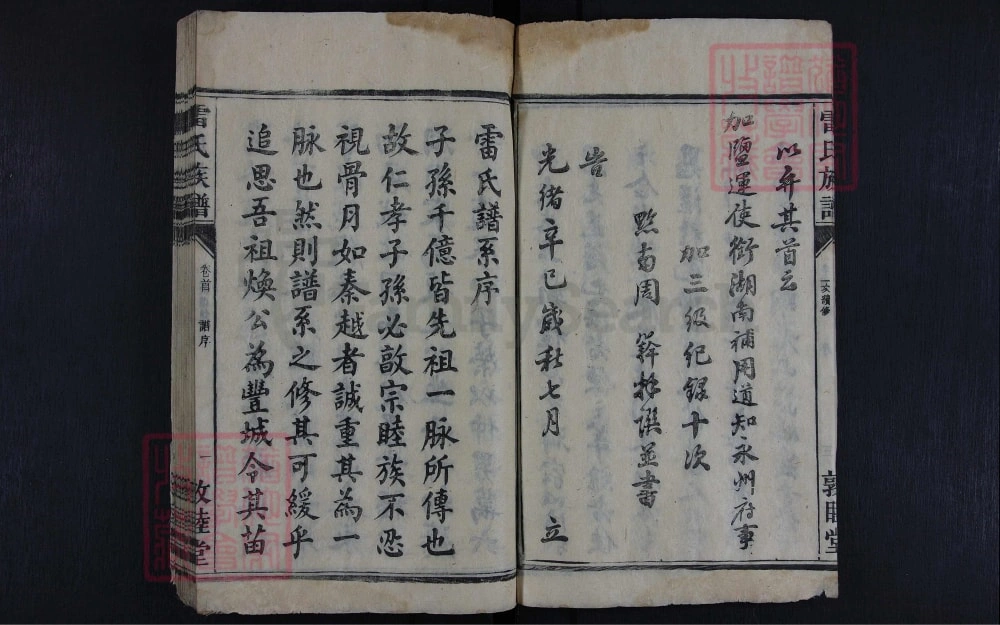 雷氏族譜
以弁其首云
加鹽運使銜湖南補用道知永州府事
加三級紀錄十次
黔南周
拜撰並書
旹
光緒辛巳歲秋七月
立
敦睦堂
雷氏譜系序
子孫千億皆先祖一脈所傳也
故仁孝子孫必敦宗睦族不忍
視骨月如秦越者誠重其為一
脉也然則譜系之修其可緩乎
追思吾祖煥公為豐城令其苗
雷氏族譜
卷首
譜序
一
敦睦堂